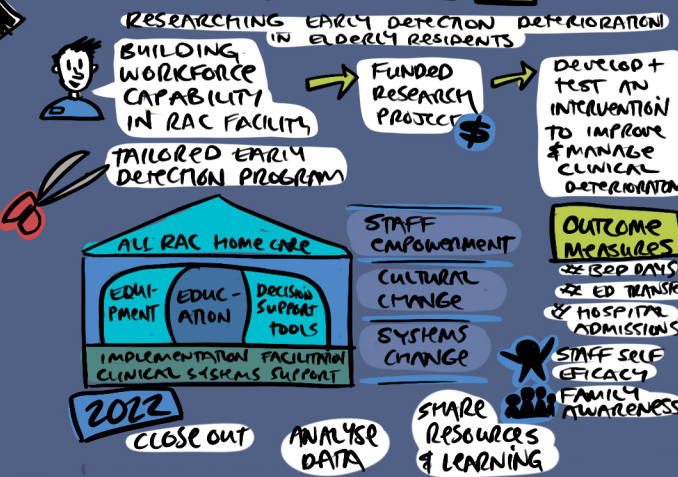 RESEARCHING EARLY DETECTION DETERIORATION
IN ELDERLY RESIDENTS
BUILDING
WORKFORCE
CAPABILITY
IN RAC FACILITY
FUNDED
RESEARCH
PROJECT
$
DEVELOP +
TEST AN
INTERVENTION
TO IMPROVE
& MANAGE
CLINICAL
DETERIORATION
TAILORED EARLY
DETECTION PROGRAM
ALL RAC HOME CARE
EQUI-
PMENT
EDUC-
ATION
DECISION
SUPPORT
TOOLS
IMPLEMENTATION FACILITATION
CLINICAL SYSTEMS SUPPORT
STAFF
EMPOWERMENT
CULTURAL
CHANGE
SYSTEMS
CHANGE
OUTCOME
MEASURES
# BED DAYS
# ED TRANSFE
# HOSPITAL
ADMISSIONS
STAFF SELF
EFICACY
FAMILY
AWARENESS
2022
CLOSE OUT
ANALYSE
DATA
SHARE
RESOURCES
& LEARNING